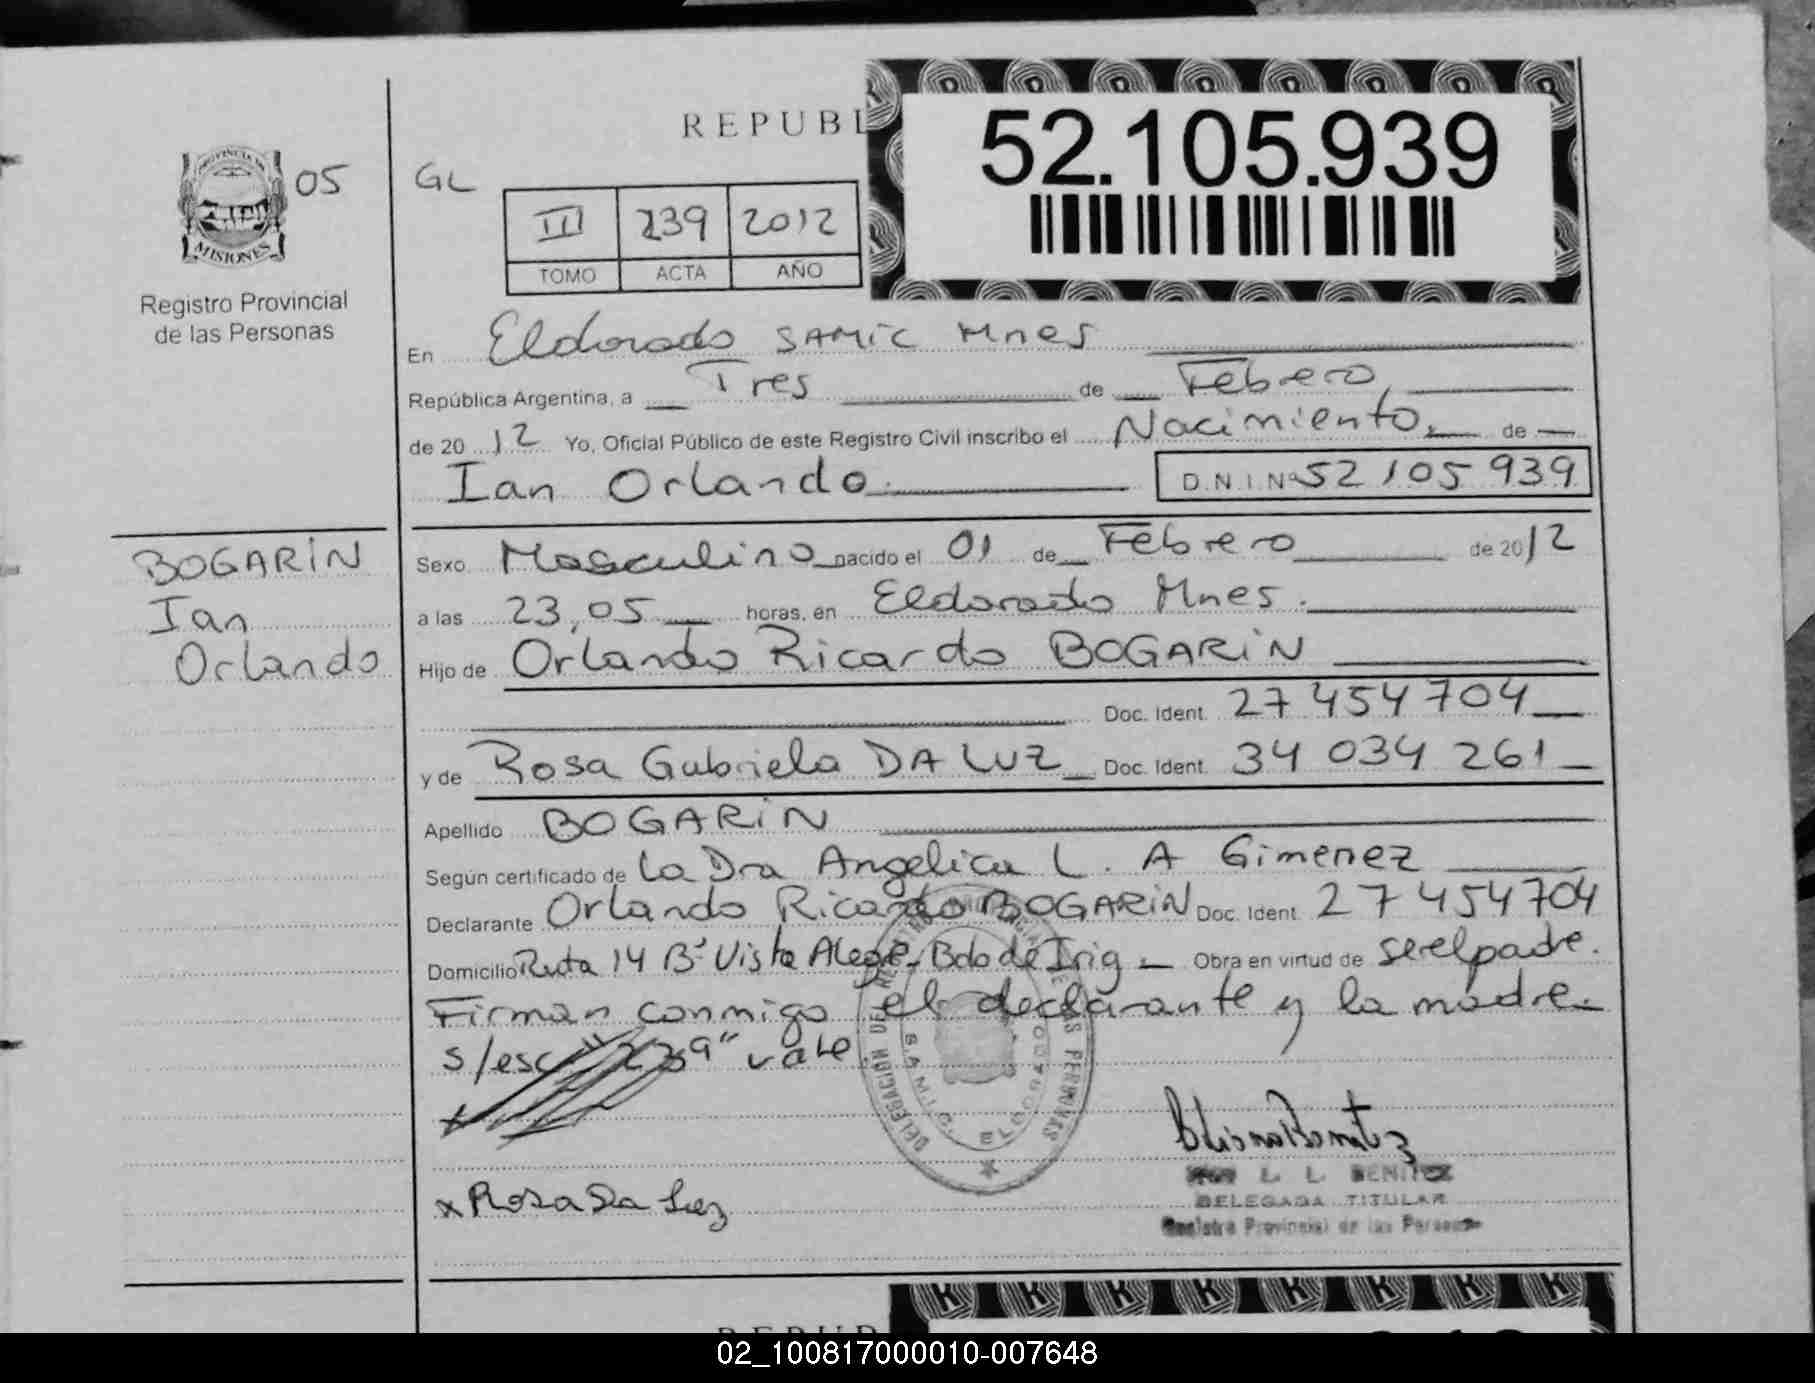 REPUBL
52.105.939
PROVINCIA DE
MISIONES
05
GL
III 239 2012
TOMO ACTA AÑO
Registro Provincial
de las Personas
En Eldorado SAMIC Mnes
República Argentina, a Tres de Febrero,
de 20 12 Yo, Oficial Público de este Registro Civil inscribo el Nacimiento, de
Ian Orlando. D.N.I.Nº 52 105 939
BOGARIN
Ian
Orlando
Sexo Masculino nacido el 01 de Febrero de 20 12
a las 23,05 horas, en Eldorado Mnes.
Hijo de Orlando Ricardo BOGARIN
Doc. Ident. 27 454 704
y de Rosa Gabriela DA LUZ Doc. Ident. 34 034 261
Apellido BOGARIN
Según certificado de La Dra Angelica L. A Gimenez
Declarante Orlando Ricardo BOGARIN Doc. Ident. 27 454704
Domicilio Ruta 14 Bº Vista Alegre, Bdo de Irig. Obra en virtud de ser el padre.
Firman conmigo el declarante y la madre.
s/esc "239" vale
DELEGACION DEL REGISTRO PROVINCIAL DE LAS PERSONAS
S.A.M.I.C. ELDORADO
x Rosa Da Luz
L. L. BENITEZ
DELEGADA TITULAR
Registro Provincial de las Personas
REPUB
02_100817000010-007648